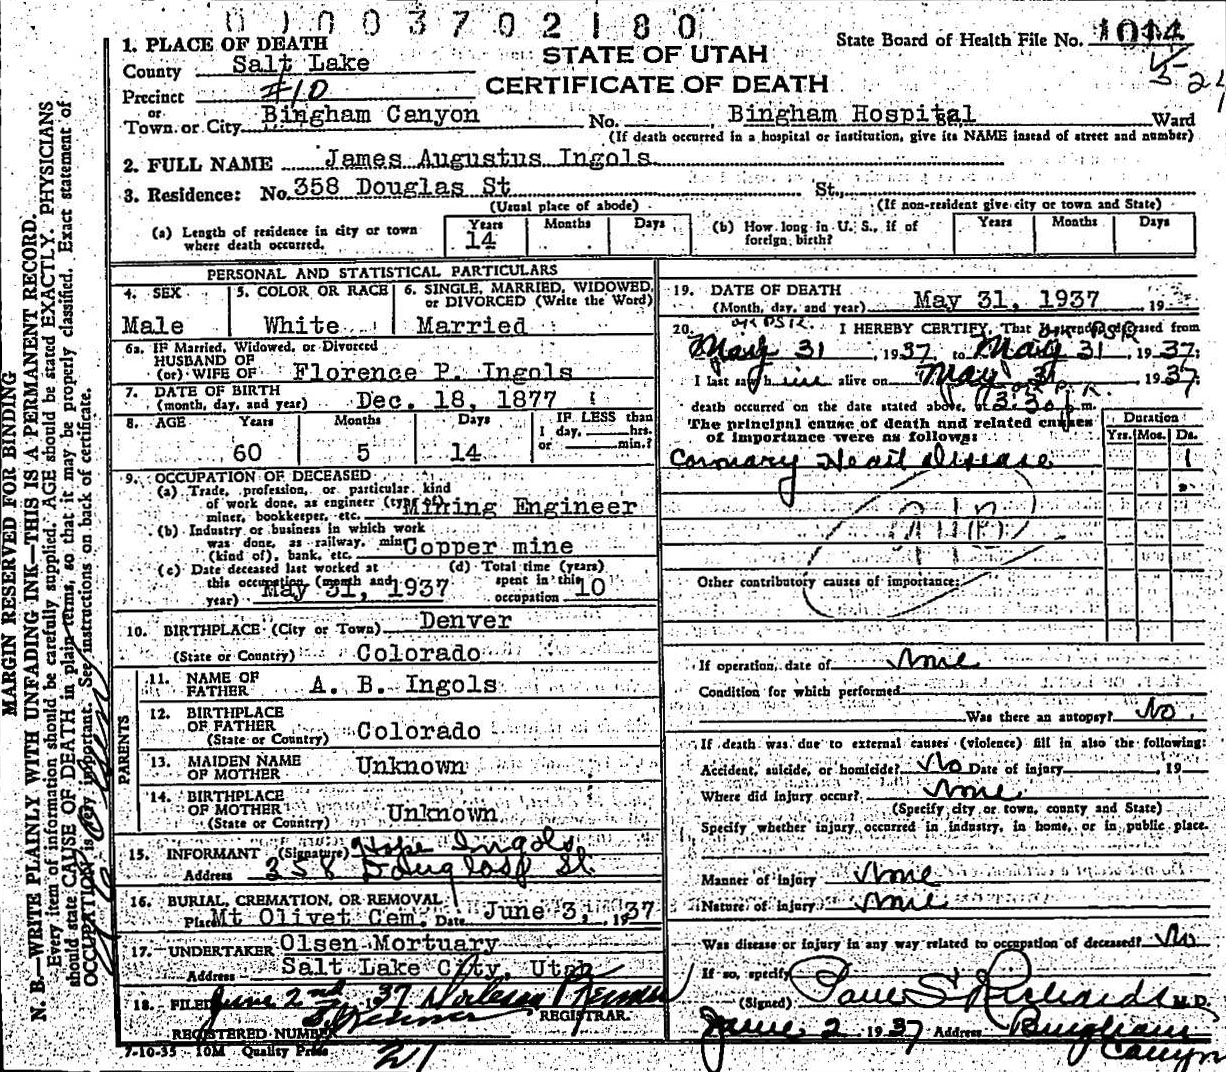 010037021 80
State Board of Health File No. 1014
STATE OF UTAH
CERTIFICATE OF DEATH
1. PLACE OF DEATH
County Salt Lake
Precinct #10
or
Town or City Bingham Canyon No. Bingham Hospital St., Ward
(If death occurred in a hospital or institution, give its NAME instead of street and number)
2. FULL NAME James Augustus Ingols
3. Residence: No. 358 Douglas St St.,
(Usual place of abode) (If non-resident give city or town and State)
(a) Length of residence in city or town where death occurred. Years 14 Months Days
(b) How long in U. S., if of foreign birth? Years Months Days
PERSONAL AND STATISTICAL PARTICULARS
4. SEX Male
5. COLOR OR RACE White
6. SINGLE, MARRIED, WIDOWED, or DIVORCED (Write the Word) Married
6a. IF Married, Widowed, or Divorced
HUSBAND OF
(or) WIFE OF Florence P. Ingols
7. DATE OF BIRTH
(month, day, and year) Dec. 18, 1877
8. AGE Years Months Days IF LESS than
1 day, hrs.
or min.?
60 5 14
9. OCCUPATION OF DECEASED
(a) Trade, profession, or particular kind
of work done, as engineer (type of)
miner, bookkeeper, etc. Mining Engineer
(b) Industry or business in which work
was done, as railway, mine
(kind of), bank, etc. Copper mine
(c) Date deceased last worked at
this occupation (month and
year) May 31, 1937
(d) Total time (years)
spent in this
occupation 10
10. BIRTHPLACE (City or Town) Denver
(State or Country) Colorado
PARENTS
11. NAME OF
FATHER A. B. Ingols
12. BIRTHPLACE
OF FATHER
(State or Country) Colorado
13. MAIDEN NAME
OF MOTHER Unknown
14. BIRTHPLACE
OF MOTHER
(State or Country) Unknown
15. INFORMANT (Signature) Hope Ingols
Address 358 Douglas St.
16. BURIAL, CREMATION, OR REMOVAL
Place Mt Olivet Cem. Date June 3, 1937
17. UNDERTAKER Olsen Mortuary
Address Salt Lake City, Utah
18. FILED June 2nd 1937
REGISTRAR.
REGISTERED NUMBER
21
7-10-35 10M Quality Press
19. DATE OF DEATH
(Month, day, and year) May 31, 1937 19
20. I HEREBY CERTIFY, That I attended deceased from
May 31, 1937, to May 31, 1937;
I last saw him alive on May 31 1937
death occurred on the date stated above, at 3:30 p.m.
The principal cause of death and related causes
of importance were as follows:
Duration
Yrs. Mos. Ds.
Coronary Heart disease 1
Other contributory causes of importance:
If operation, date of None
Condition for which performed
Was there an autopsy? No.
If death was due to external causes (violence) fill in also the following:
Accident, suicide, or homicide? No Date of injury , 19
Where did injury occur? None
(Specify city or town, county and State)
Specify whether injury occurred in industry, in home, or in public place.
Manner of injury None
Nature of injury None
Was disease or injury in any way related to occupation of deceased? No
If so, specify
(Signed) Paul S. Richards M.D.
June 2 1937 Address Bingham
Canyon
MARGIN RESERVED FOR BINDING
N. B.—WRITE PLAINLY WITH UNFADING INK—THIS IS A PERMANENT RECORD.
Every item of information should be carefully supplied. AGE should be stated EXACTLY. PHYSICIANS
should state CAUSE OF DEATH in plain terms, so that it may be properly classified. Exact statement of
OCCUPATION is very important. See instructions on back of certificate.